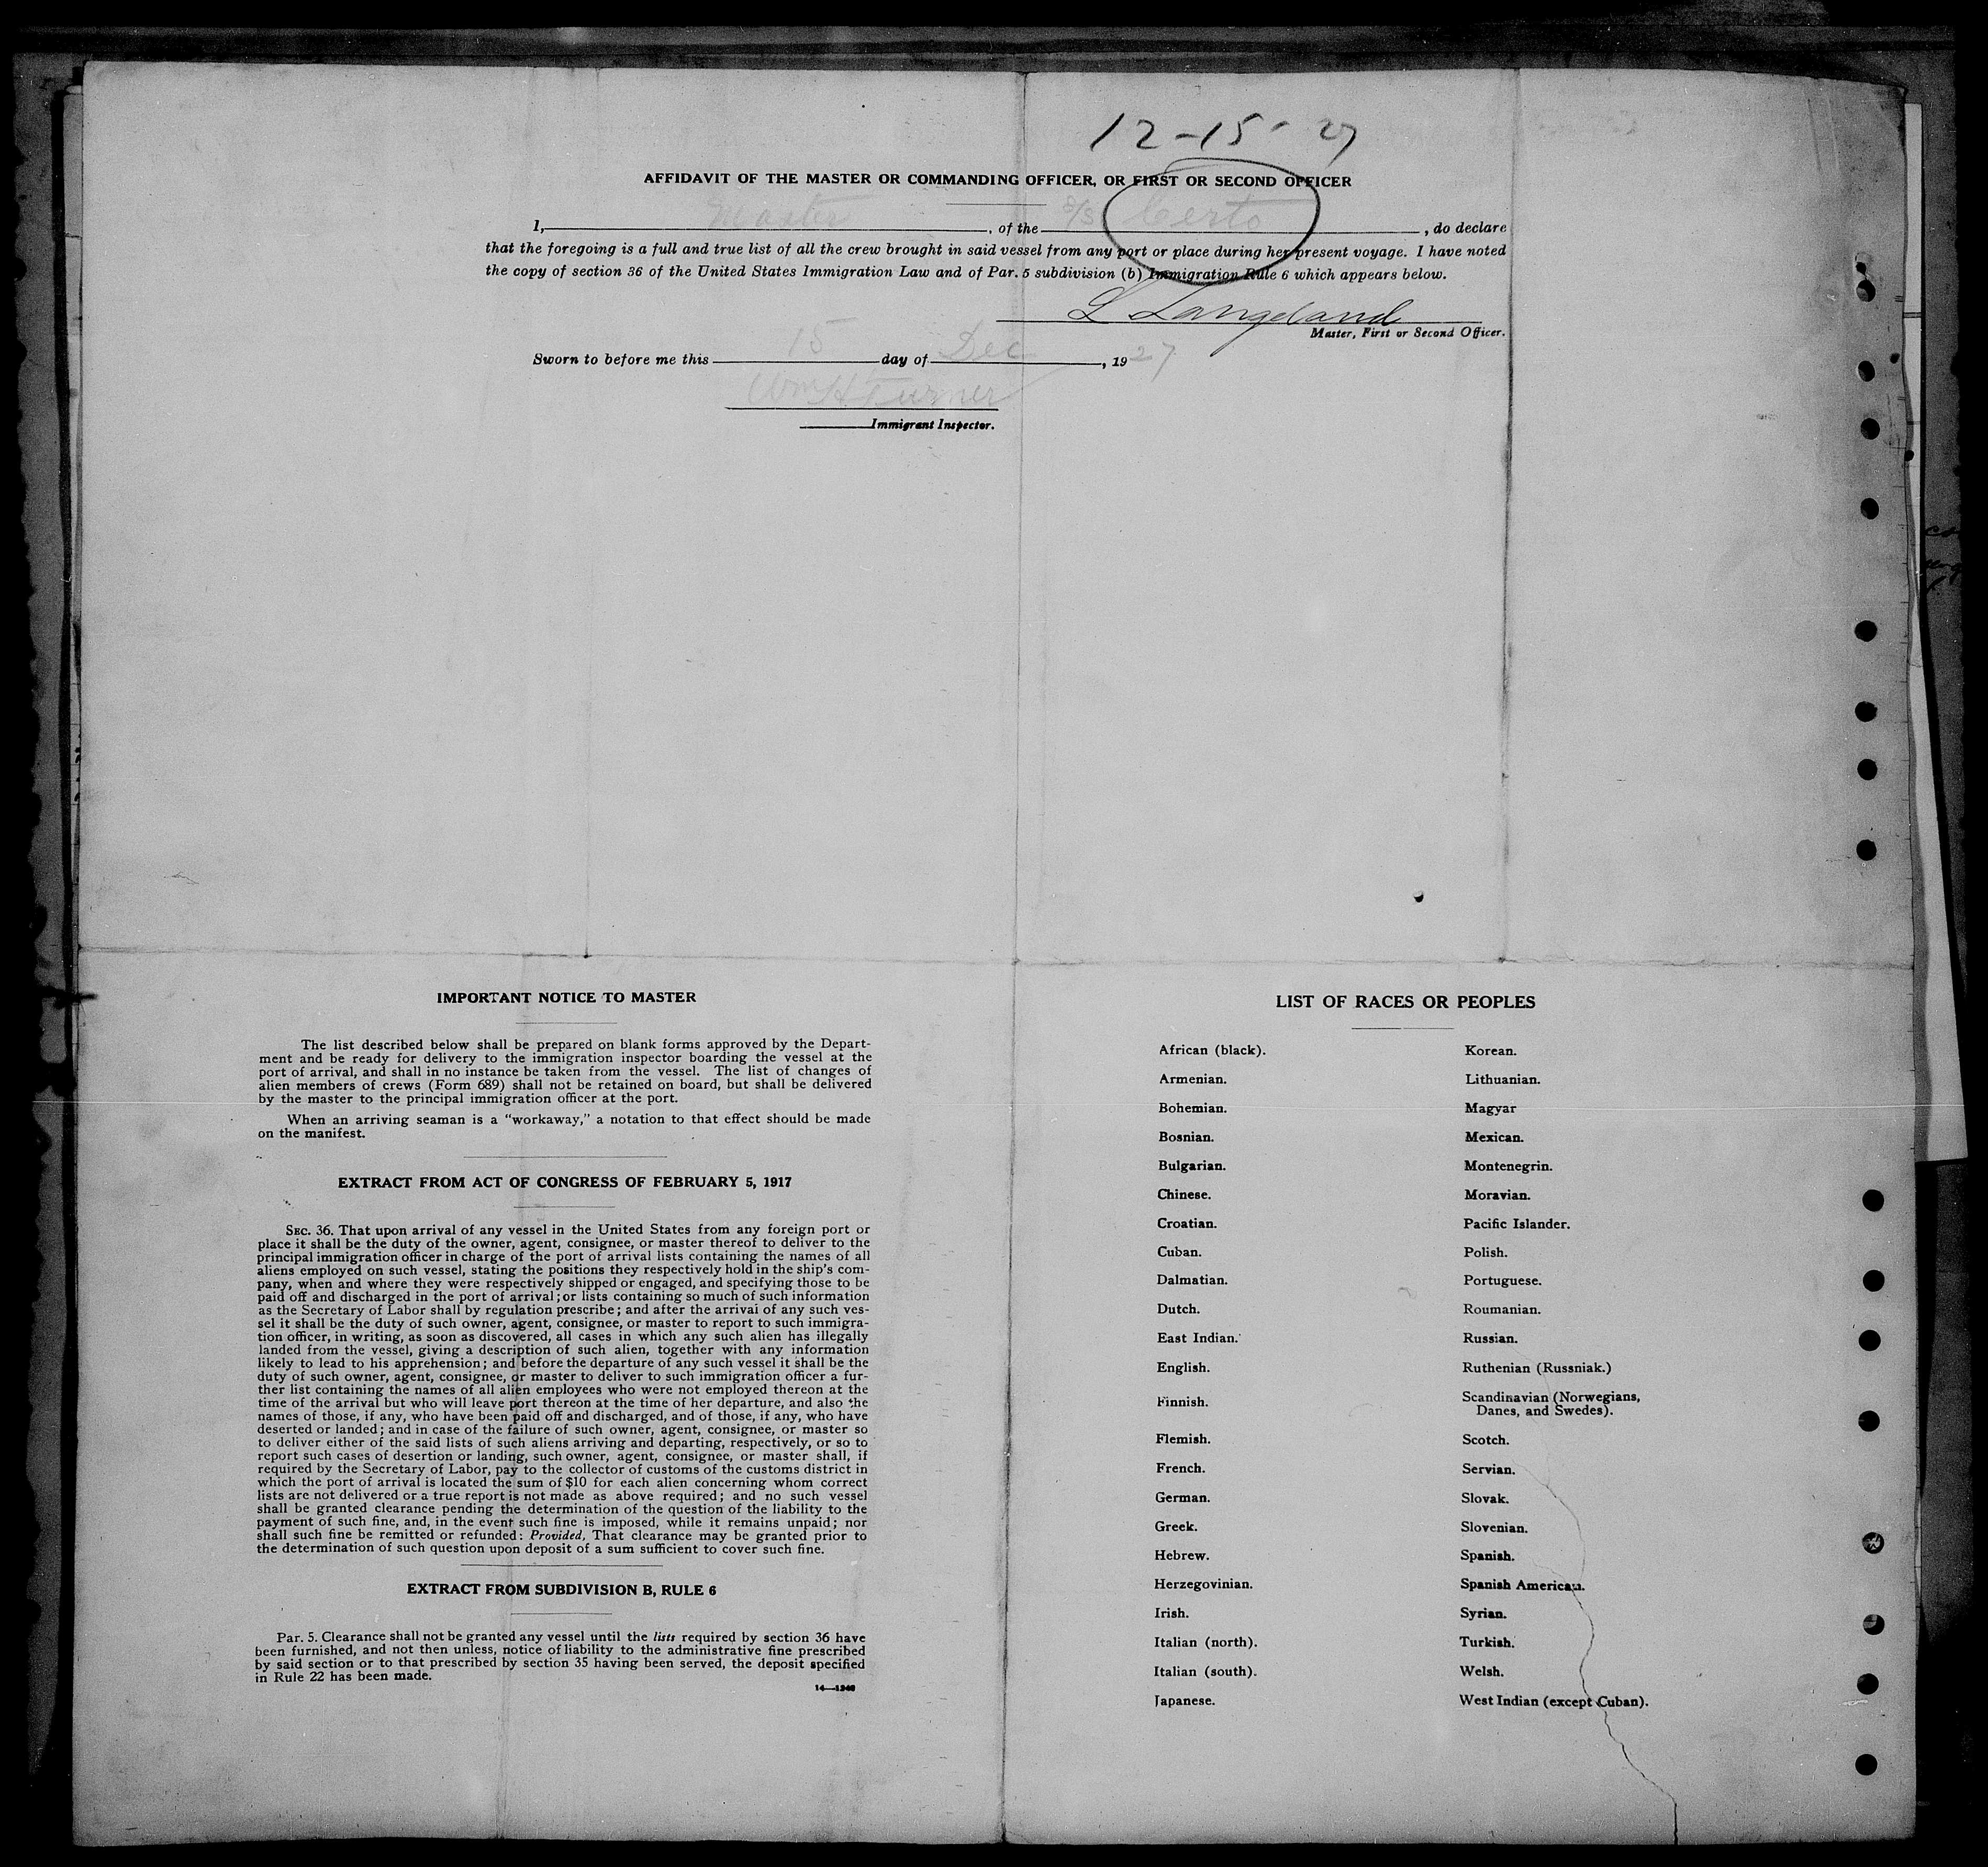 12-15-27
AFFIDAVIT OF THE MASTER OR COMMANDING OFFICER, OR FIRST OR SECOND OFFICER
I, Master, of the S/S Certo, do declare
that the foregoing is a full and true list of all the crew brought in said vessel from any port or place during her present voyage. I have noted
the copy of section 36 of the United States Immigration Law and of Par. 5 subdivision (b) Immigration Rule 6 which appears below.
L Langeland
Master, First or Second Officer.
Sworn to before me this 15 day of Dec, 1927
Wm H Turner
Immigrant Inspector.
IMPORTANT NOTICE TO MASTER
The list described below shall be prepared on blank forms approved by the Depart-
ment and be ready for delivery to the immigration inspector boarding the vessel at the
port of arrival, and shall in no instance be taken from the vessel. The list of changes of
alien members of crews (Form 689) shall not be retained on board, but shall be delivered
by the master to the principal immigration officer at the port.
When an arriving seaman is a "workaway," a notation to that effect should be made
on the manifest.
EXTRACT FROM ACT OF CONGRESS OF FEBRUARY 5, 1917
SEC. 36. That upon arrival of any vessel in the United States from any foreign port or
place it shall be the duty of the owner, agent, consignee, or master thereof to deliver to the
principal immigration officer in charge of the port of arrival lists containing the names of all
aliens employed on such vessel, stating the positions they respectively hold in the ship's com-
pany, when and where they were respectively shipped or engaged, and specifying those to be
paid off and discharged in the port of arrival; or lists containing so much of such information
as the Secretary of Labor shall by regulation prescribe; and after the arrival of any such ves-
sel it shall be the duty of such owner, agent, consignee, or master to report to such immigra-
tion officer, in writing, as soon as discovered, all cases in which any such alien has illegally
landed from the vessel, giving a description of such alien, together with any information
likely to lead to his apprehension; and before the departure of any such vessel it shall be the
duty of such owner, agent, consignee, or master to deliver to such immigration officer a fur-
ther list containing the names of all alien employees who were not employed thereon at the
time of the arrival but who will leave port thereon at the time of her departure, and also the
names of those, if any, who have been paid off and discharged, and of those, if any, who have
deserted or landed; and in case of the failure of such owner, agent, consignee, or master so
to deliver either of the said lists of such aliens arriving and departing, respectively, or so to
report such cases of desertion or landing, such owner, agent, consignee, or master shall, if
required by the Secretary of Labor, pay to the collector of customs of the customs district in
which the port of arrival is located the sum of $10 for each alien concerning whom correct
lists are not delivered or a true report is not made as above required; and no such vessel
shall be granted clearance pending the determination of the question of the liability to the
payment of such fine, and, in the event such fine is imposed, while it remains unpaid; nor
shall such fine be remitted or refunded: Provided, That clearance may be granted prior to
the determination of such question upon deposit of a sum sufficient to cover such fine.
EXTRACT FROM SUBDIVISION B, RULE 6
Par. 5. Clearance shall not be granted any vessel until the lists required by section 36 have
been furnished, and not then unless, notice of liability to the administrative fine prescribed
by said section or to that prescribed by section 35 having been served, the deposit specified
in Rule 22 has been made.
14—1240
LIST OF RACES OR PEOPLES
African (black).
Armenian.
Bohemian.
Bosnian.
Bulgarian.
Chinese.
Croatian.
Cuban.
Dalmatian.
Dutch.
East Indian.
English.
Finnish.
Flemish.
French.
German.
Greek.
Hebrew.
Herzegovinian.
Irish.
Italian (north).
Italian (south).
Japanese.
Korean.
Lithuanian.
Magyar
Mexican.
Montenegrin.
Moravian.
Pacific Islander.
Polish.
Portuguese.
Roumanian.
Russian.
Ruthenian (Russniak.)
Scandinavian (Norwegians,
Danes, and Swedes).
Scotch.
Servian.
Slovak.
Slovenian.
Spanish.
Spanish American.
Syrian.
Turkish.
Welsh.
West Indian (except Cuban).